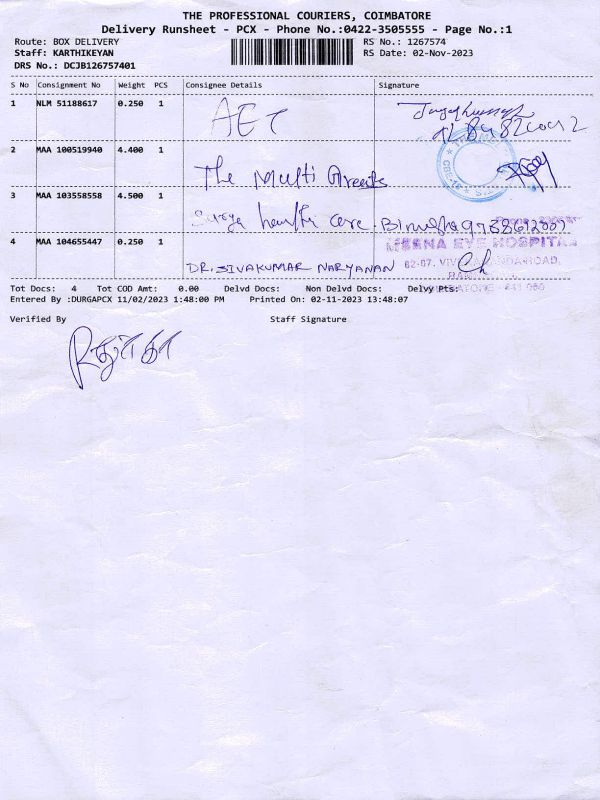 THE PROFESSIONAL COURIERS, COIMBATORE
Delivery Runsheet - PCX - Phone No.:0422-3505555 - Page No.:1
Route: BOX DELIVERY RS No.: 1267574
Staff: KARTHIKEYAN RS Date: 02-Nov-2023
DRS No.: DCJB126757401
S No Consignment No Weight PCS Consignee Details Signature
1 NLM 51188617 0.250 1 AET
2 MAA 100519940 4.400 1 The Multi Greents
3 MAA 103558558 4.500 1 Surya health care
MEENA EYE HOSPITAL
4 MAA 104655447 0.250 1 DR. SIVAKUMAR NARYANAN
Tot Docs: 4 Tot COD Amt: 0.00 Delvd Docs: Non Delvd Docs: Delvy Pts:
Entered By :DURGAPCX 11/02/2023 1:48:00 PM Printed On: 02-11-2023 13:48:07
Verified By Staff Signature